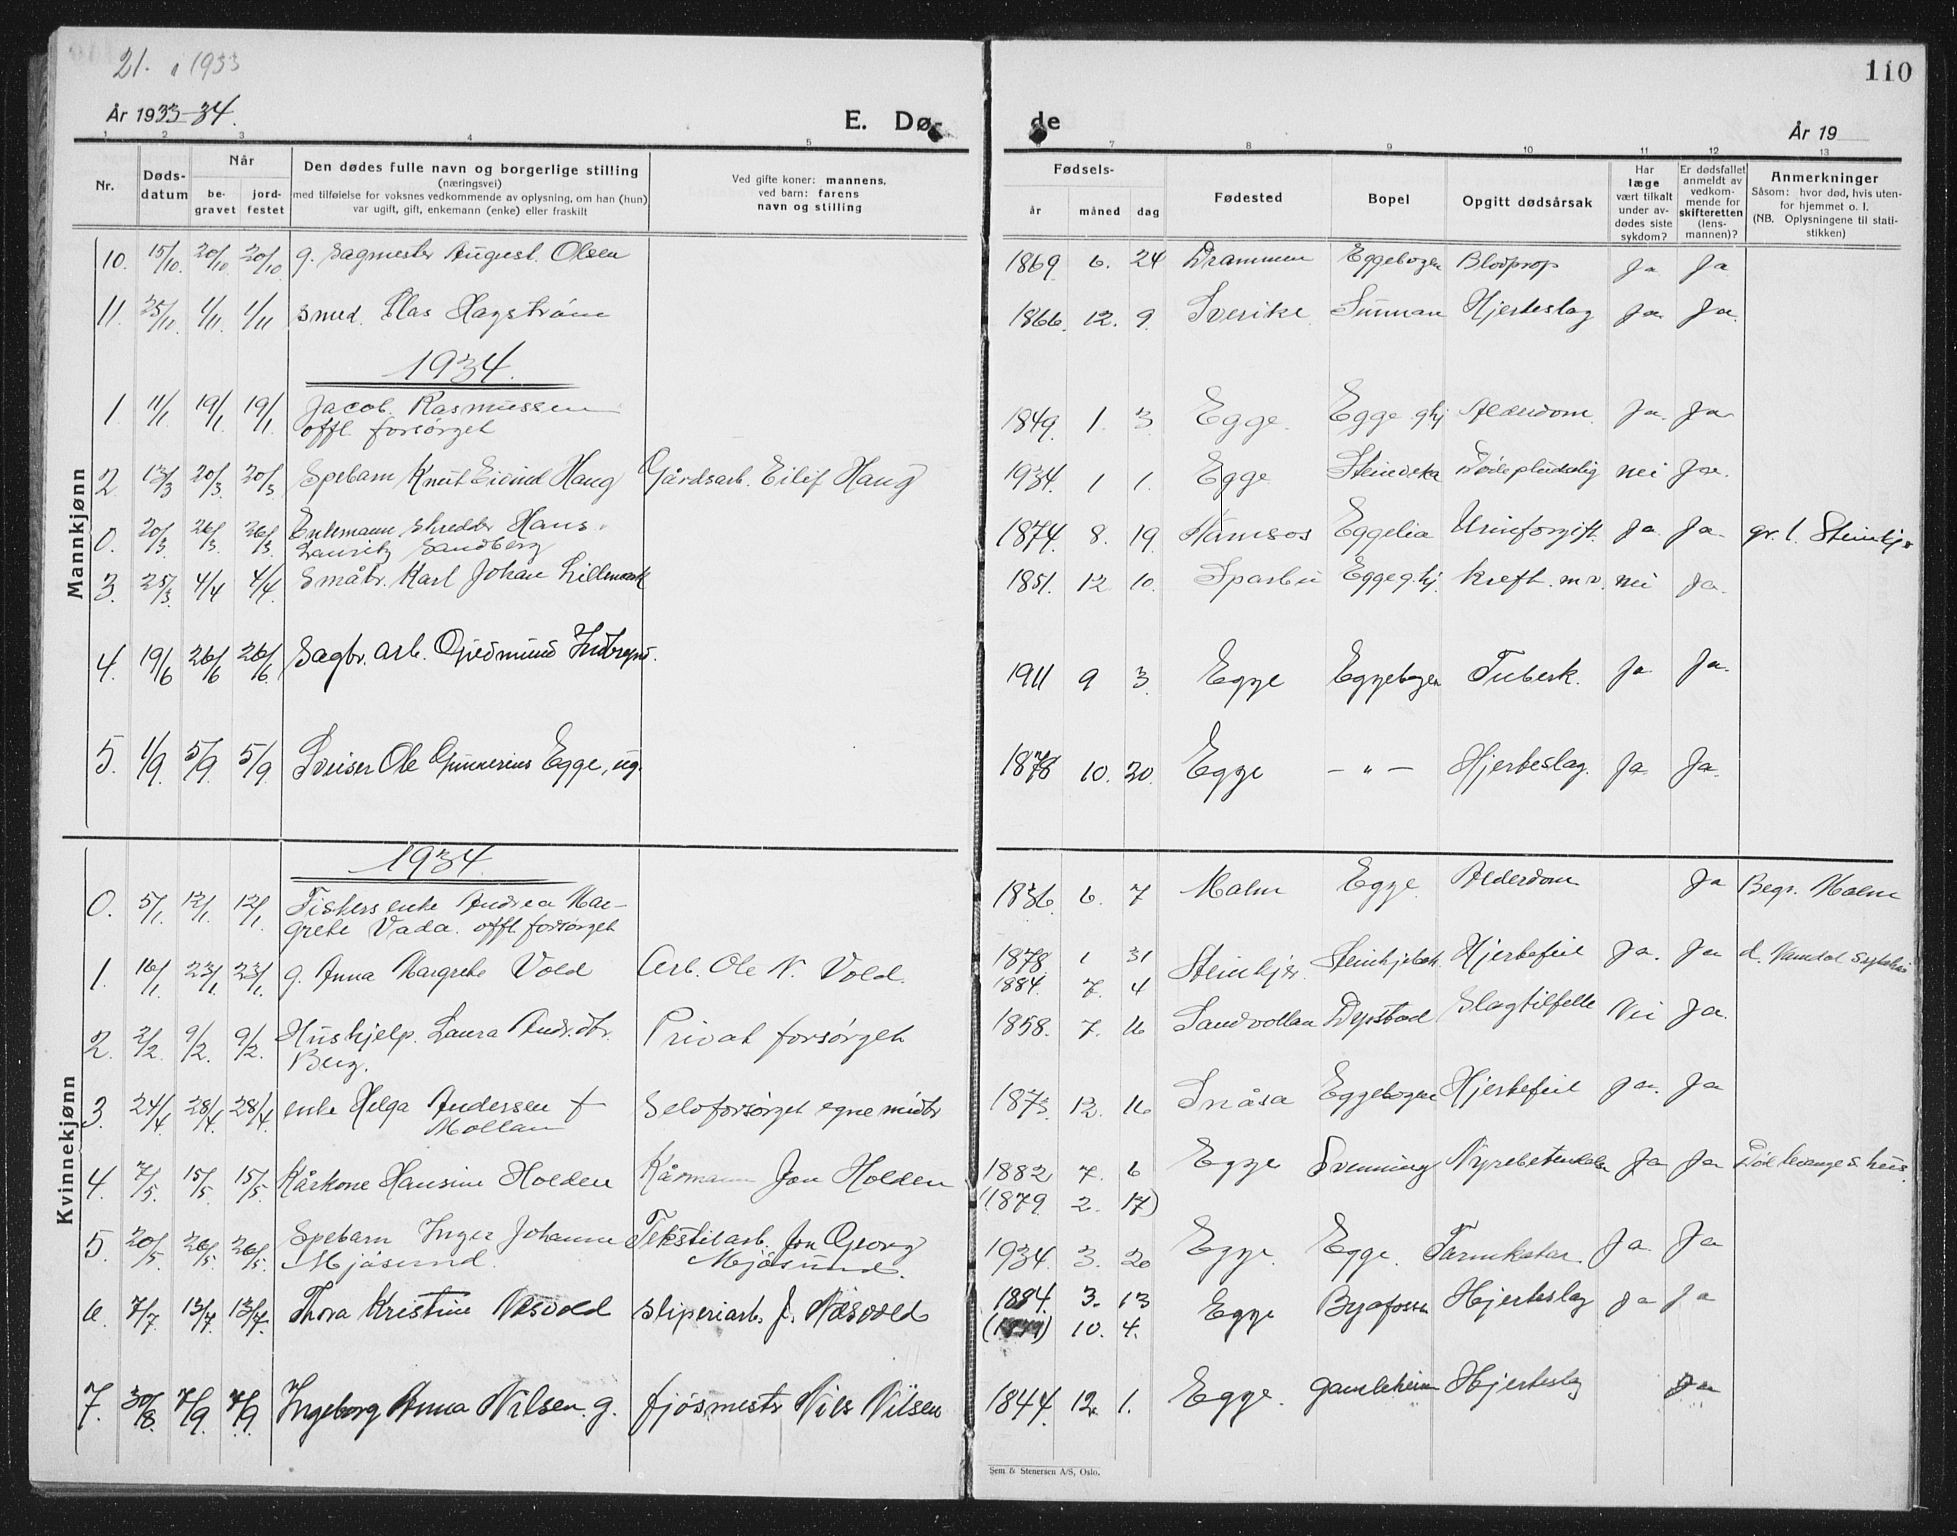 21. i 1933
110
År 1933-34.
E. Dø-
de
År 19
1 2 3 4 5 7 8 9 10 11 12 13
Nr.
Døds-
datum
Når
be-
gravet
jord-
festet
Den dødes fulle navn og borgerlige stilling
(næringsvei)
med tilføielse for voksnes vedkommende av oplysning, om han (hun)
var ugift, gift, enkemann (enke) eller fraskilt
Ved gifte koner: mannens,
ved barn: farens
navn og stilling
Fødsels-
år
måned
dag
Fødested
Bopel
Opgitt dødsårsak
Har
læge
vært tilkalt
under av-
dødes siste
sykdom?
Er dødsfallet
anmeldt av
vedkom-
mende for
skifteretten
(lens-
mannen)?
Anmerkninger
Såsom: hvor død, hvis uten-
for hjemmet o. l.
(NB. Oplysningene til stati-
stikken)
Mannkjønn
10. 15/10. 20/10 20/10 g. Sagmester August Olsen 1869 6. 24 Drammen Eggebogen Blodprop Ja Ja
11. 25/11 1/11 1/11 smed. Clas Hagstrøm 1866. 12. 9. Sverike Sunnan Hjerteslag Ja Ja.
1934.
1 11/1 19/1 19/1 Jacob Rasmussen 1849. 1. 3. Egge. Egge ghj Alderdom. Ja. Ja
offl. forsørget
2 13/3 20/3 20/3 Spebarn Knut Eivind Haug Gårdsarb. Eilif Haug 1934. 1 1. Egge nei Ja.
0. 20/3 26/3 26/3. Enkemann skredder Hans 1874. 8. 19. Namsos Eggelia Urinforgift. Ja. Ja gr. i. Steinkjer
Lauritz Sandberg
3. 25/3 4/4 4/4 Småbr. Karl Johan Lillemark 1851. 12 10. Sparbu Egge g.hj. kreft. m.v. nei Ja.
4. 19/6 26/6 26/6 Sagbr. arb. 1911 9 3. Egge Eggebogen Tuberk. Ja Ja.
5. 1/9. 5/9 5/9 Sveiser Ole Gunnerius Egge, ug. 1878 10. 20. Egge — " — Hjerteslag. Ja Ja.
Kvinnekjønn
1934.
0. 5/1 12/1. 12/1 Fiskers enke Andrea Mar- 1836. 6. 7 Malm Egge Alderdom Ja Begr. Malm
grete Vada. offl. forsørget
1. 16/1 23/1 23/1. g. Anna Margrete Vold Arb. Ole N. Vold. 1878 1 31 Steinkjer. Hjertefeil Ja. Ja d. Namdal
1884. 7. 4
2. 2/2 9/2. 9/2. Hushjelp. Laura Andr.dtr. Privat forsørget 1858. 7. 16 Sandvollan Dypstad Slagtilfelle Nei Ja.
Berg.
3. 24/4 28/4 28/4. enke Helga Andersen f. Selvforsørget egne midler 1873. 12. 16 Snåsa Eggebogen Hjertefeil Ja. Ja
Mollan
4. 7/5. 15/5 15/5. Kårkone Hansine Holden Kårmann Jon Holden 1882 7. 6 Egge Svenning Nyrebetendelse Ja Ja Død Levanger s. hus.
(1879. 2. 17)
5. 20/5. 26/5. 26/5. Spebarn Inger Johanne Tekstilarb. Jon Georg 1934. 3. 20 Egge. Egge. Tarmkatar. Ja. Ja
Mjøsund. Mjøsund.
6. 7/7 13/7 13/7. Thora Kristine Næsvold Sliperiarb. J. Næsvold 1884. 3. 13 Egge Byafossen Hjerteslag Ja Ja
10. 4.
7. 30/8. 7/9 7/9. Ingeborg Anna Nilsen. g. fjøsmester Nils Nilsen 1844. 12. 1. Egge. gamleheim Hjerteslag Ja
Sem & Stenersen A/S, Oslo.